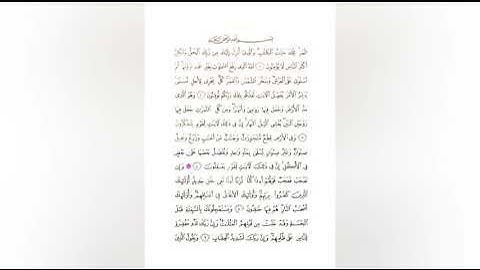 بسم الله الرحمن الرحيم
الٓمٓر تِلْكَ ءَايَٰتُ ٱلْكِتَٰبِ وَٱلَّذِىٓ أُنزِلَ إِلَيْكَ مِن رَّبِّكَ ٱلْحَقُّ وَلَٰكِنَّ
أَكْثَرَ ٱلنَّاسِ لَا يُؤْمِنُونَ ١ ٱللَّهُ ٱلَّذِى رَفَعَ ٱلسَّمَٰوَٰتِ بِغَيْرِ عَمَدٍ تَرَوْنَهَا ثُمَّ
ٱسْتَوَىٰ عَلَى ٱلْعَرْشِ وَسَخَّرَ ٱلشَّمْسَ وَٱلْقَمَرَ كُلٌّ يَجْرِى لِأَجَلٍ مُّسَمًّى
يُدَبِّرُ ٱلْأَمْرَ يُفَصِّلُ ٱلْءَايَٰتِ لَعَلَّكُم بِلِقَآءِ رَبِّكُمْ تُوقِنُونَ ٢ وَهُوَ ٱلَّذِى
مَدَّ ٱلْأَرْضَ وَجَعَلَ فِيهَا رَوَٰسِىَ وَأَنْهَٰرًا وَمِن كُلِّ ٱلثَّمَرَٰتِ جَعَلَ فِيهَا
زَوْجَيْنِ ٱثْنَيْنِ يُغْشِى ٱلَّيْلَ ٱلنَّهَارَ إِنَّ فِى ذَٰلِكَ لَءَايَٰتٍ لِّقَوْمٍ يَتَفَكَّرُونَ
٣ وَفِى ٱلْأَرْضِ قِطَعٌ مُّتَجَٰوِرَٰتٌ وَجَنَّٰتٌ مِّنْ أَعْنَٰبٍ وَزَرْعٌ وَنَخِيلٌ
صِنْوَانٌ وَغَيْرُ صِنْوَانٍ يُسْقَىٰ بِمَآءٍ وَٰحِدٍ وَنُفَضِّلُ بَعْضَهَا عَلَىٰ بَعْضٍ
فِى ٱلْأُكُلِ إِنَّ فِى ذَٰلِكَ لَءَايَٰتٍ لِّقَوْمٍ يَعْقِلُونَ ٤ وَإِن
تَعْجَبْ فَعَجَبٌ قَوْلُهُمْ أَءِذَا كُنَّا تُرَٰبًا أَءِنَّا لَفِى خَلْقٍ جَدِيدٍ أُو۟لَٰٓئِكَ
ٱلَّذِينَ كَفَرُوا۟ بِرَبِّهِمْ وَأُو۟لَٰٓئِكَ ٱلْأَغْلَٰلُ فِىٓ أَعْنَاقِهِمْ وَأُو۟لَٰٓئِكَ
أَصْحَٰبُ ٱلنَّارِ هُمْ فِيهَا خَٰلِدُونَ ٥ وَيَسْتَعْجِلُونَكَ بِٱلسَّيِّئَةِ قَبْلَ
ٱلْحَسَنَةِ وَقَدْ خَلَتْ مِن قَبْلِهِمُ ٱلْمَثُلَٰتُ وَإِنَّ رَبَّكَ لَذُو مَغْفِرَةٍ
لِّلنَّاسِ عَلَىٰ ظُلْمِهِمْ وَإِنَّ رَبَّكَ لَشَدِيدُ ٱلْعِقَابِ ٦ وَيَقُولُ ٱلَّذِينَ